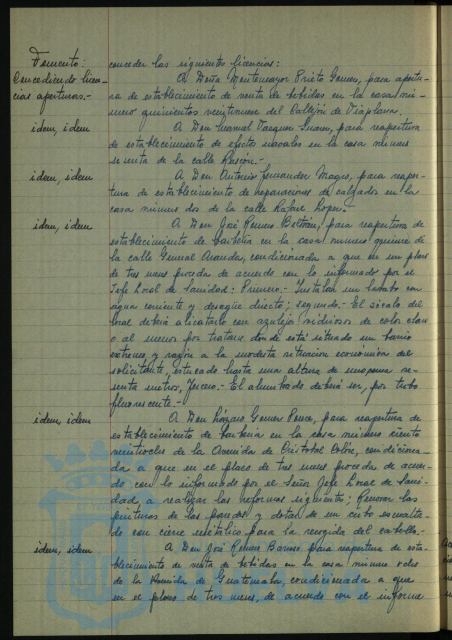 Fomento:
Concediendo licen-
cias aperturas.-
conceder las siguientes licencias:
A Doña Montemayor Prieto Gomez, para apertu-
ra de establecimiento de venta de bebidas en la casa nú-
mero quinientos veintinueve del Callejón de Viaplana.
idem, idem
A Don Manuel Vazquez Suarez, para reapertura
de establecimiento de efectos navales en la casa número
setenta de la calle Rascón.-
idem, idem
A Don Antonio Fernandez Magro, para reaper-
tura de establecimiento de reparaciones de calzados en la
casa número dos de la calle Rafael Lopez.-
idem, idem
A Don José Romero Beltrán, para reapertura de
establecimiento de barbería en la casa número quince de
la calle General Aranda, condicionada a que en un plazo
de tres meses proceda de acuerdo con lo informado por el
Jefe Local de Sanidad: Primero.- Instalar un lavabo con
agua corriente y desagüe directo; segundo.- El zócalo del
local deberá alicatarlo con azulejos vidriosos de color claro
o al menos por tratarse donde está situado un barrio
extremo, y razón a la modesta situación económica del
solicitante, estucado hasta una altura de uno se-
senta metros, Tercero.- El alumbrado deberá ser, por tubo
fluorescente.-
idem, idem
A Don Lázaro Gomez Ponce, para reapertura de
establecimiento de barbería en la casa número ciento
veintiocho de la Avenida de Cristobal Colón, condiciona-
da a que en el plazo de tres meses proceda de acuer-
do con lo informado por el Señor Jefe Local de Sani-
dad a realizar las reformas siguiente; Renovar las
pinturas de las paredes y dotar de un cubo esmalta-
do con cierre metálico para la recogida del cabello.-
idem, idem
A Don José Romero Barroso para reapertura de esta-
blecimiento de venta de bebidas en la casa número ocho
de la Avenida de Guatemala, condicionada a que
en el plazo de tres meses, de acuerdo con el informe